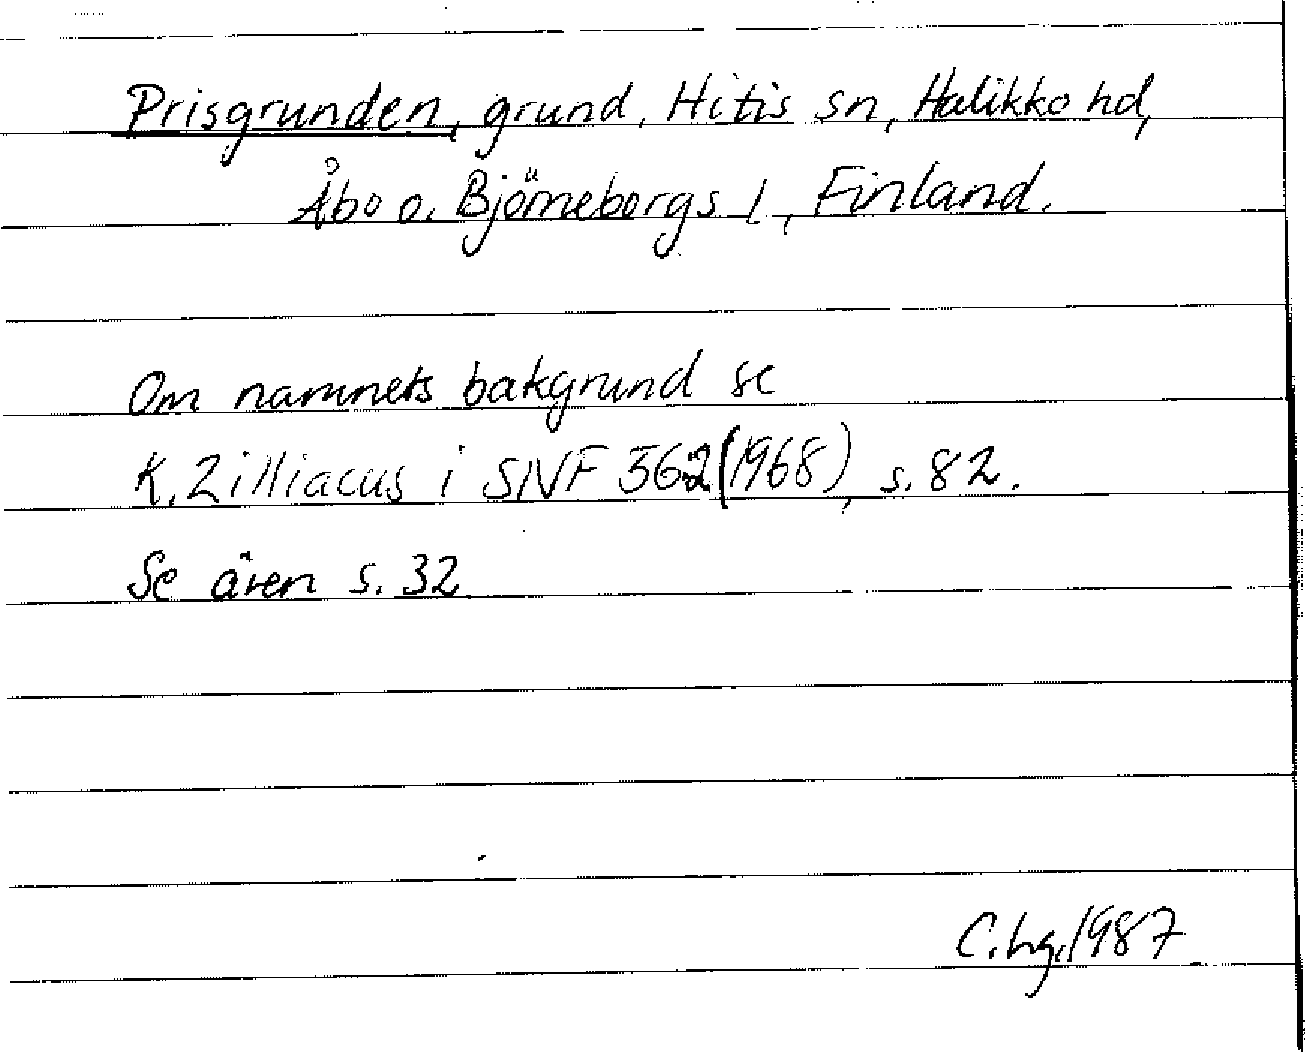 Prisgrunden, grund, Hitis sn, Halikko hd,
Åbo o. Björneborgs l, Finland.
Om namnets bakgrund se
K. Zilliacus i SNF 562 (1968), s. 82.
Se även s. 32
C. hg. 1987